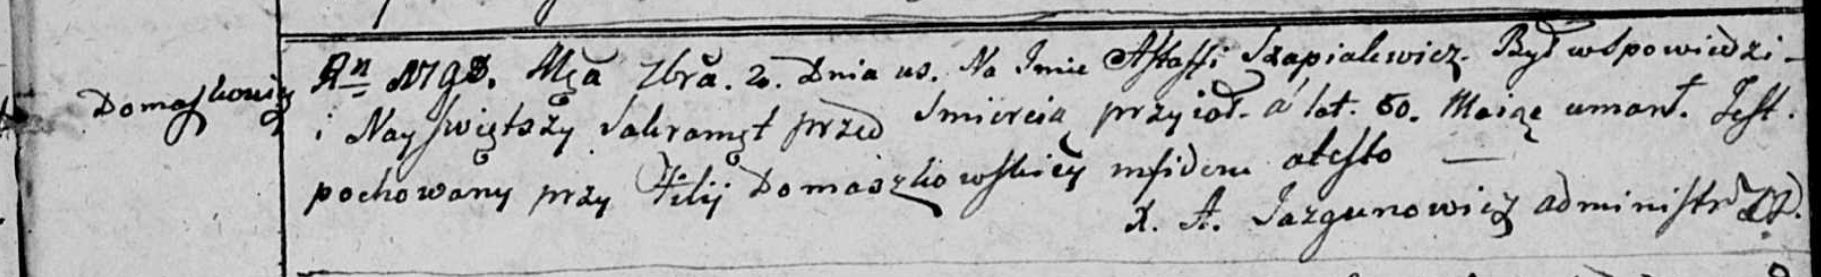 Domaszkowicz
An 1798. Mca 7bra. 2. Dnia us. Na Imie Astafsi Szapialewicz. Był w Spowiedzi -
i Nayświętszy Sakramęt przed Smiercią przyioł. a lat. 60. Maiąc umarł. Jest.
pochowany przy Filij Domaszkowskiey infidem atesto —
X. A. Jazgunowicz administr